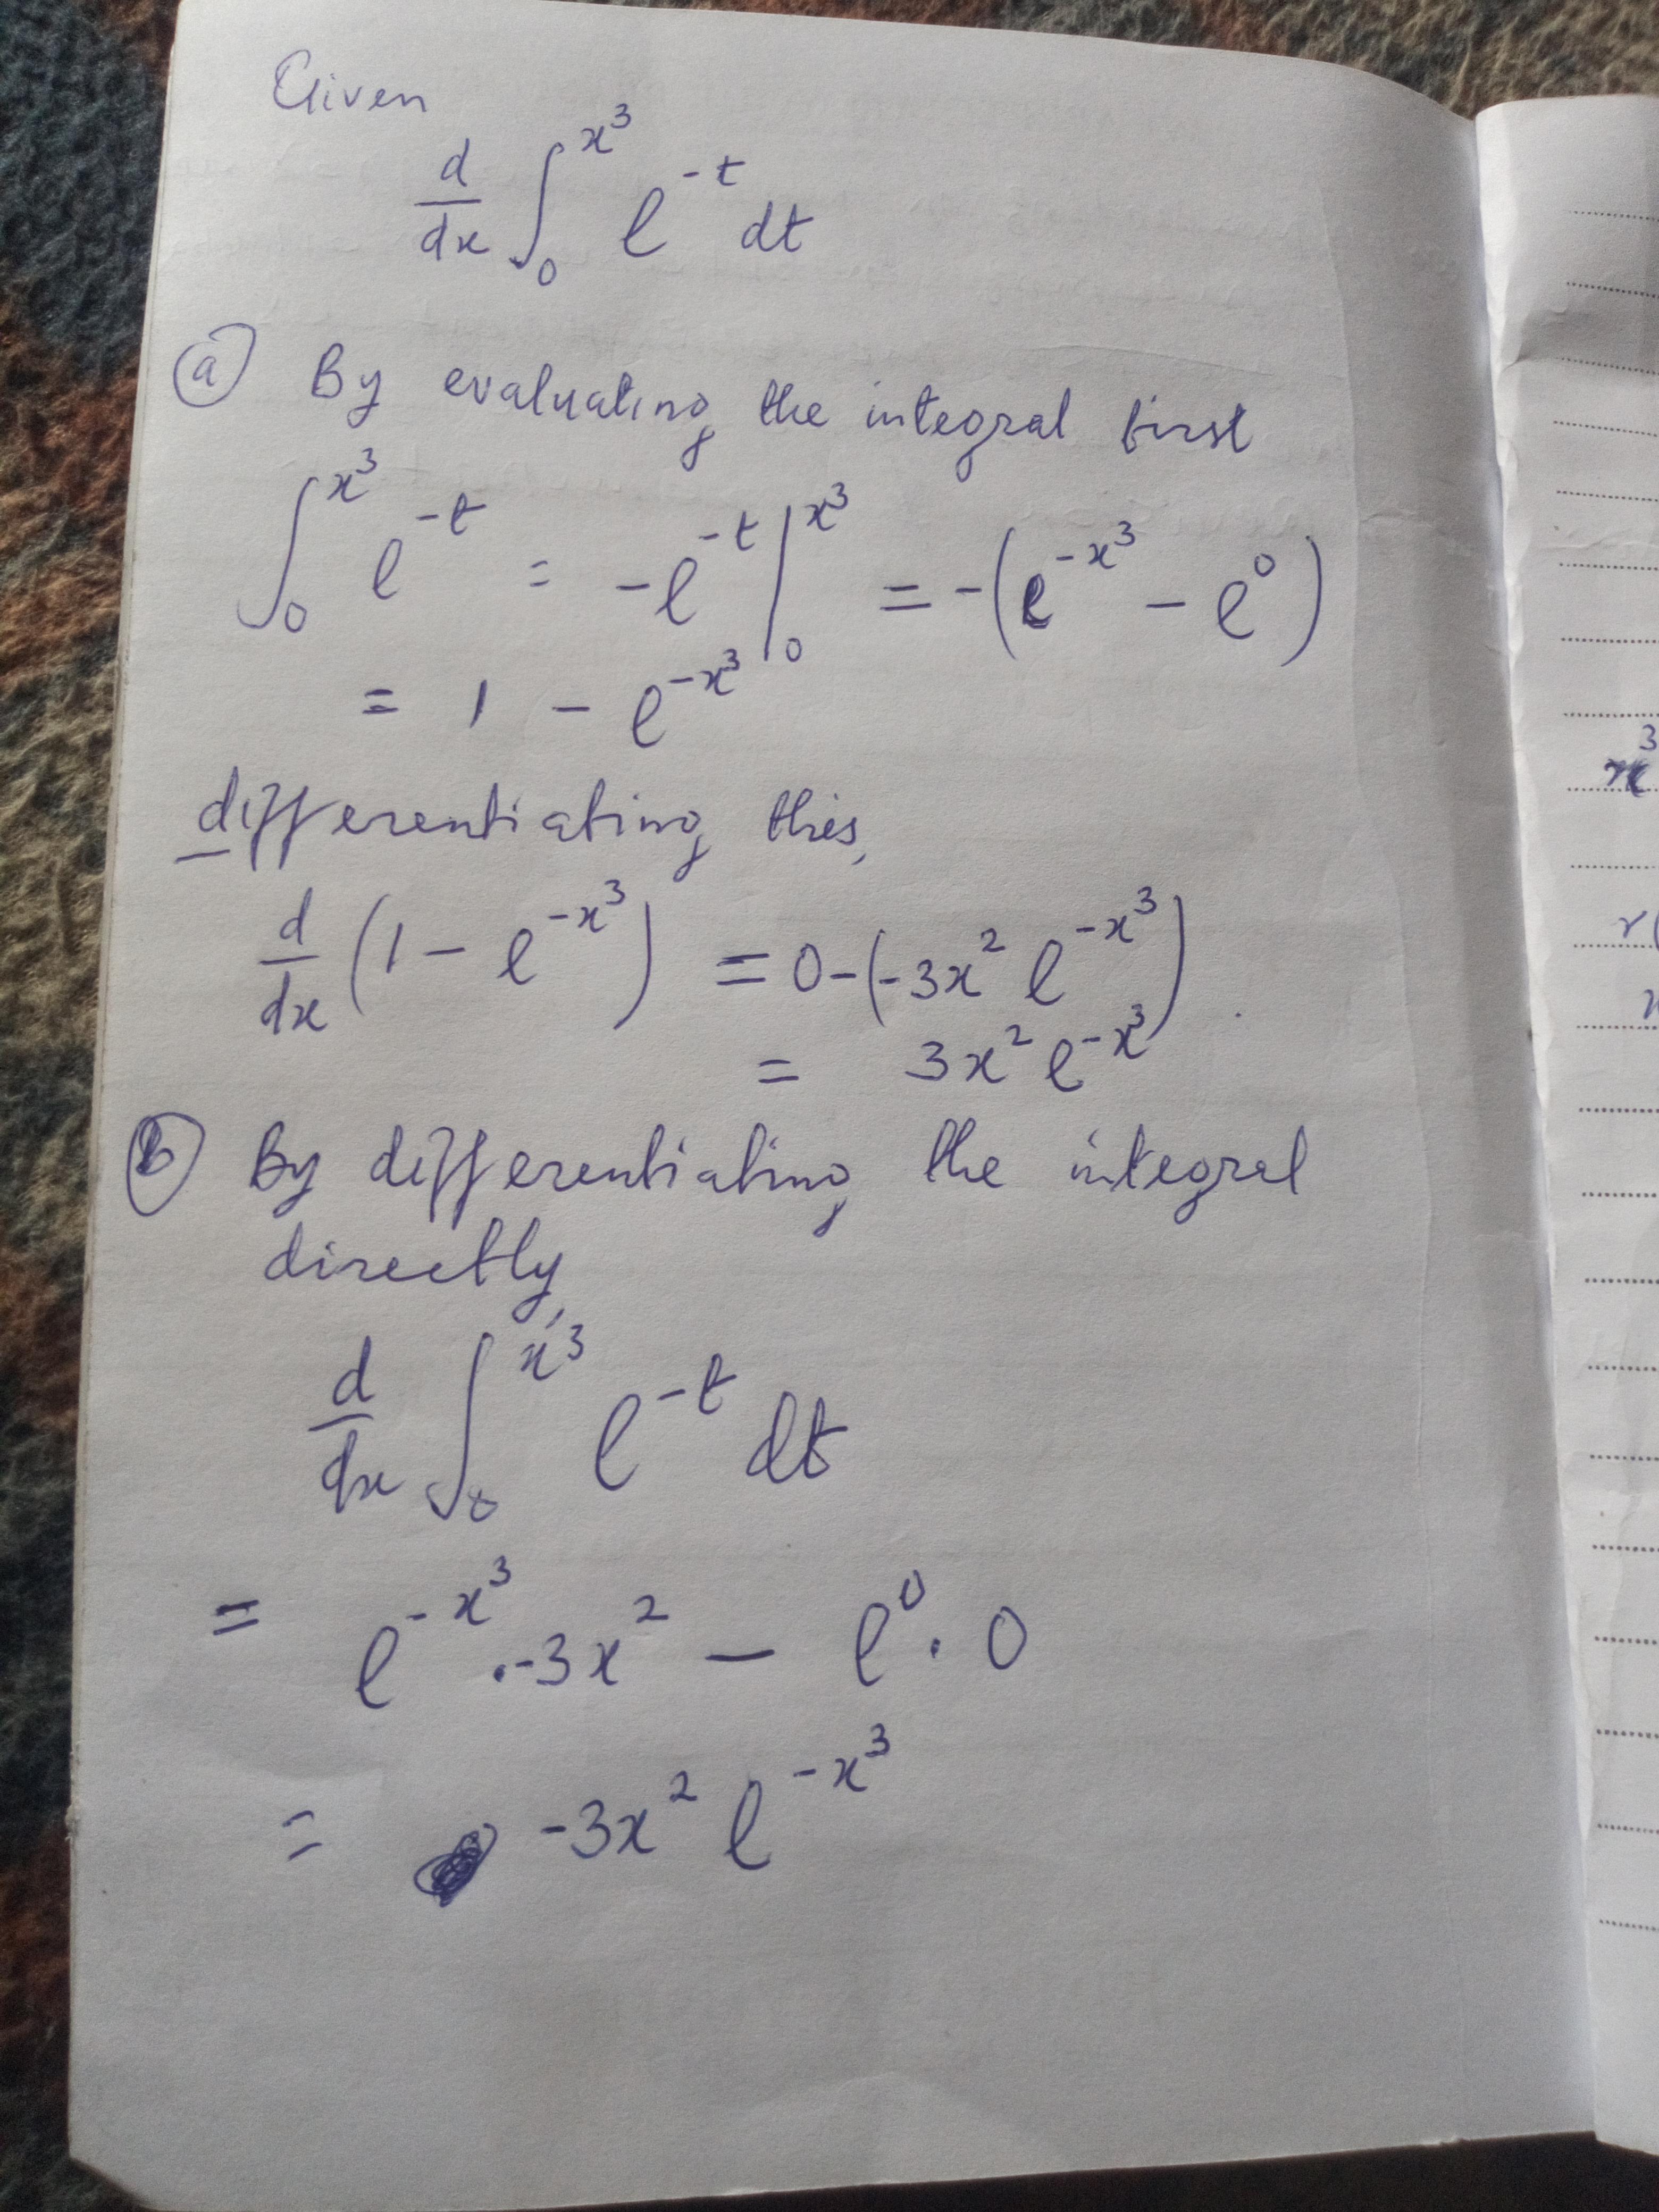 Given
d/dx ∫₀^{x³} e^{-t} dt
(a) By evaluating the integral first
∫₀^{x³} e^{-t} = -e^{-t} |₀^{x³} = -(e^{-x³} - e⁰)
= 1 - e^{-x³}
differentiating this,
d/dx (1 - e^{-x³}) = 0-(-3x² e^{-x³})
= 3x² e^{-x³}
(b) By differentiating the integral
directly,
d/dx ∫₀^{x³} e^{-t} dt
= e^{-x³} . -3x² - e⁰ . 0
= -3x² e^{-x³}
x³